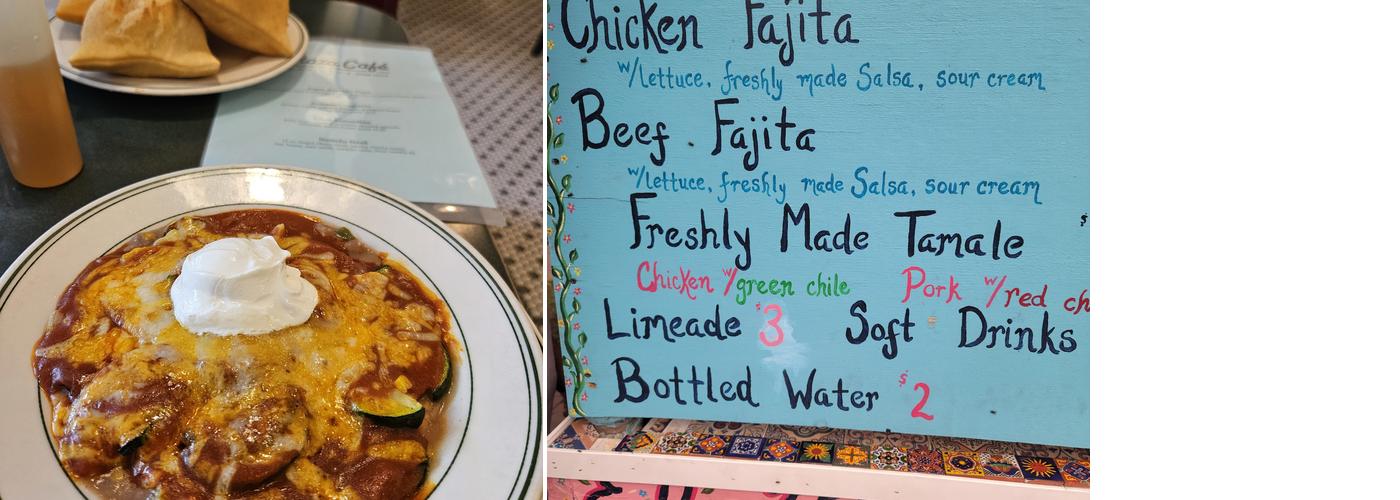 Café
Chicken Fajita
w/lettuce, freshly made Salsa, sour cream
Beef Fajita
w/lettuce, freshly made Salsa, sour cream
Freshly Made Tamale $
Chicken w/green chile Pork w/red ch
Limeade $3 Soft Drinks
Bottled Water $2